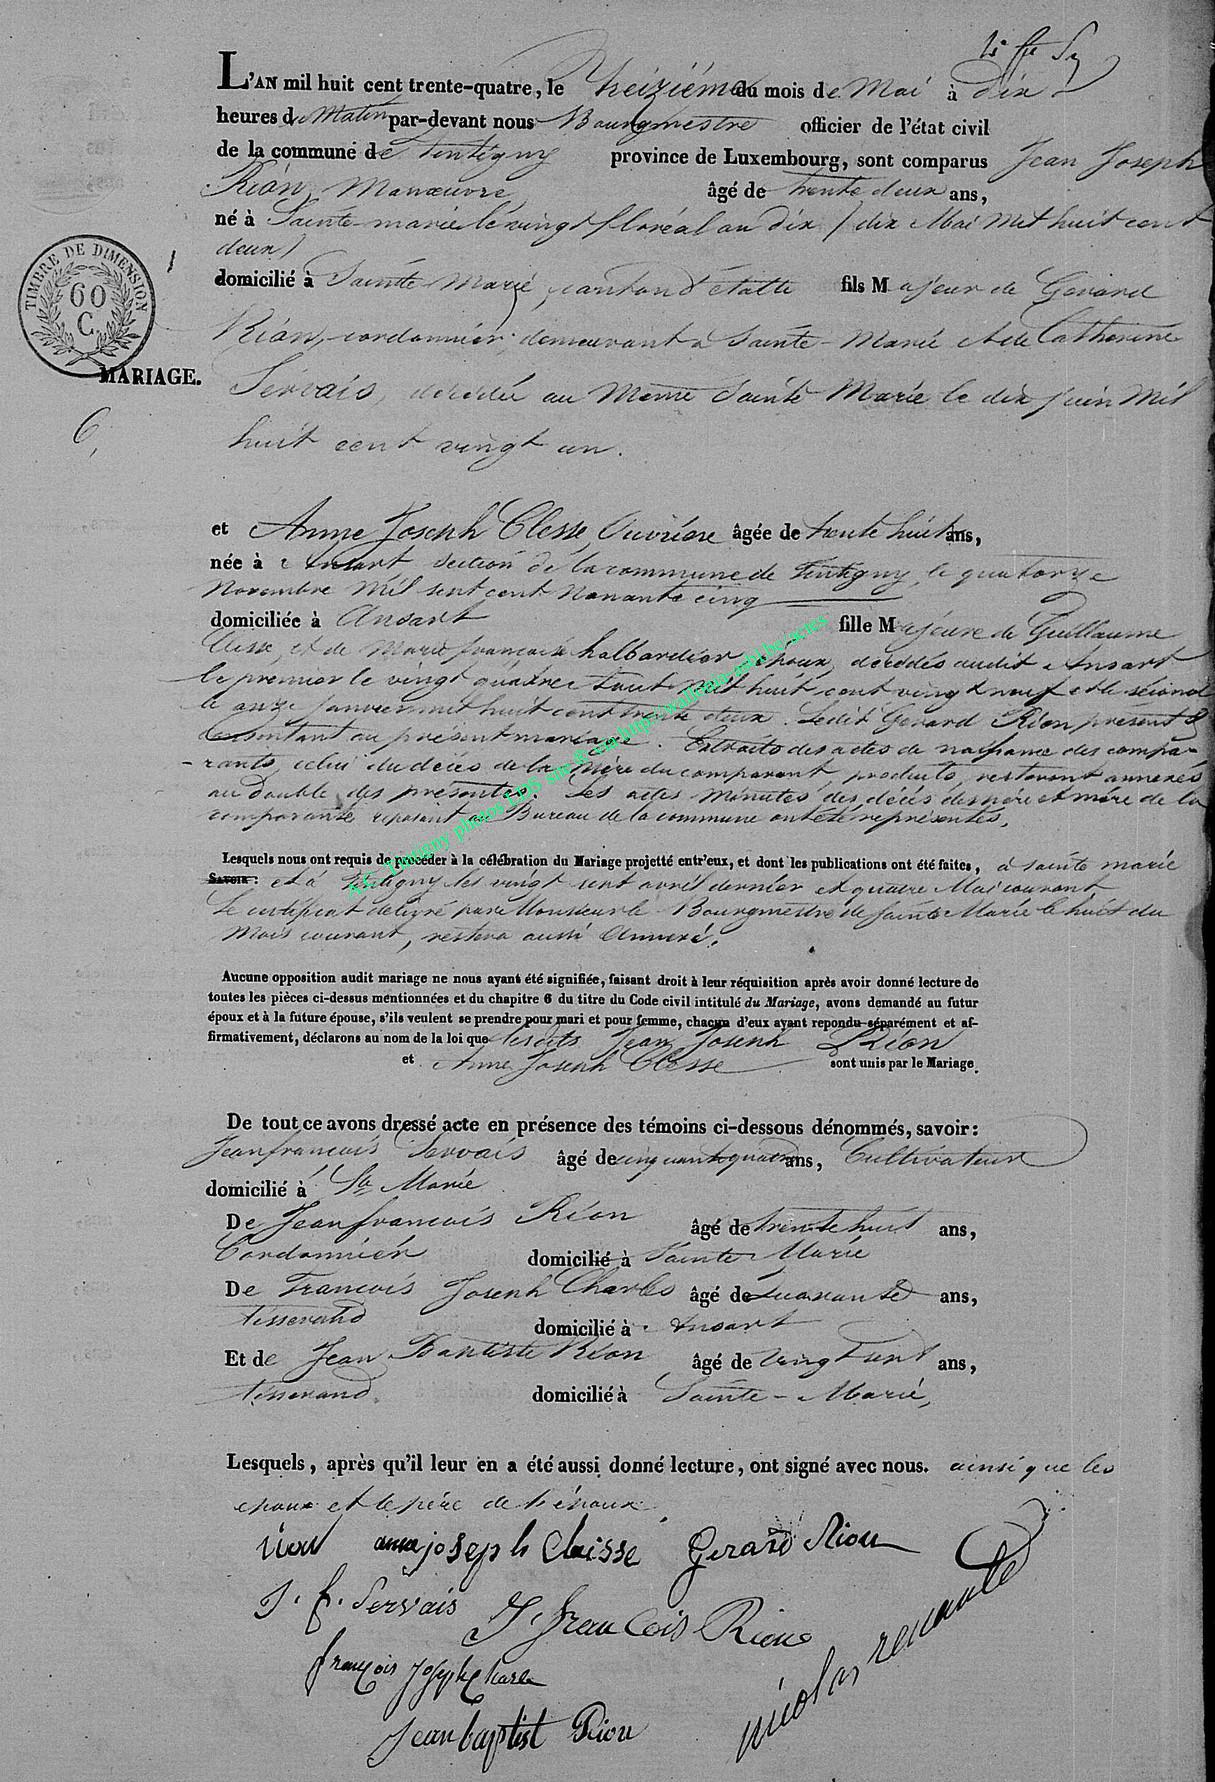 L'AN mil huit cent trente-quatre, le treizième du mois de Mai à dix
heures du Matin par-devant nous Bourgmestre officier de l'état civil
de la commune de Tintigny province de Luxembourg, sont comparus Jean Joseph
Rion, Manœuvre, âgé de trente deux ans,
né à Sainte-marie le vingt floréal an dix (dix Mai Mil huit cent
deux)
domicilié à Sainte Marie, canton d'étalle fils Majeur de Gerard
Rion, cordonnier, demeurant a Sainte-Marie et de Catherine
Servais, décédée au Meme Sainte Marie le dix juin Mil
huit cent vingt un.
TIMBRE DE DIMENSION
60
C.
MARIAGE.
6,
et Anne Joseph Clesse, Ouvrière âgée de trente huit ans,
née à Ansart section de la commune de Tintigny, le quatorze
Novembre Mil sept cent Nonante cinq
domiciliée à Ansart fille Majeure de Guillaume
Clesse, et de Marie françoise halbardier, époux, décédés audit Ansart
le premier le vingt quatre Aout Mil huit cent vingt neuf et le second
le onze janvier mil huit cent trente deux. Ledit Gerard Rion present &
consentant au présent mariage. Extraits des actes de naissance des compa-
-rants, celui du décés de la Mère du comparant, produits, resteront annexés
au double des présentes. Les actes Minutes des décés des père et mère de la
comparante reposant au Bureau de la commune ont été représentés.
A.E. Tintigny photos LDS site & via http://wallonia-asbl.be/actes
Lesquels nous ont requis de procéder à la célébration du Mariage projetté entr'eux, et dont les publications ont été faites, à sainte marie
SAVOIR: et à Tintigny les vingt sept avril dernier et quatre Mai courant
Le certificat délivré par Monsieur le Bourgmestre de Sainte Marie le huit du
Mois courant, restera aussi Annexé.
Aucune opposition audit mariage ne nous ayant été signifiée, faisant droit à leur réquisition après avoir donné lecture de
toutes les pièces ci-dessus mentionnées et du chapitre 6 du titre du Code civil intitulé du Mariage, avons demandé au futur
époux et à la future épouse, s'ils veulent se prendre pour mari et pour femme, chacun d'eux ayant repondu séparément et af-
firmativement, déclarons au nom de la loi que lesdits Jean Joseph Rion
et Anne Joseph Clesse sont unis par le Mariage.
De tout ce avons dressé acte en présence des témoins ci-dessous dénommés, savoir:
Jean françois Servais âgé de cinquante quatre ans, Cultivateur
domicilié à Ste Marie
De Jean francois Rion âgé de trente huit ans,
Cordonnier domicilié à Sainte Marie
De Francois Joseph Charles âgé de Quarante ans,
tisserand domicilié à Ansart
Et de Jean Baptiste Rion âgé de vingt sept ans,
tisserand. domicilié à Sainte-Marie,
Lesquels, après qu'il leur en a été aussi donné lecture, ont signé avec nous. ainsi que les
epoux et le père de l'époux.
rion anne joseph Claisse Gerard Rion
J. f. Servais J. francois Rion
françois Joseph Charle
nicolas renauld
Jean baptist Rion